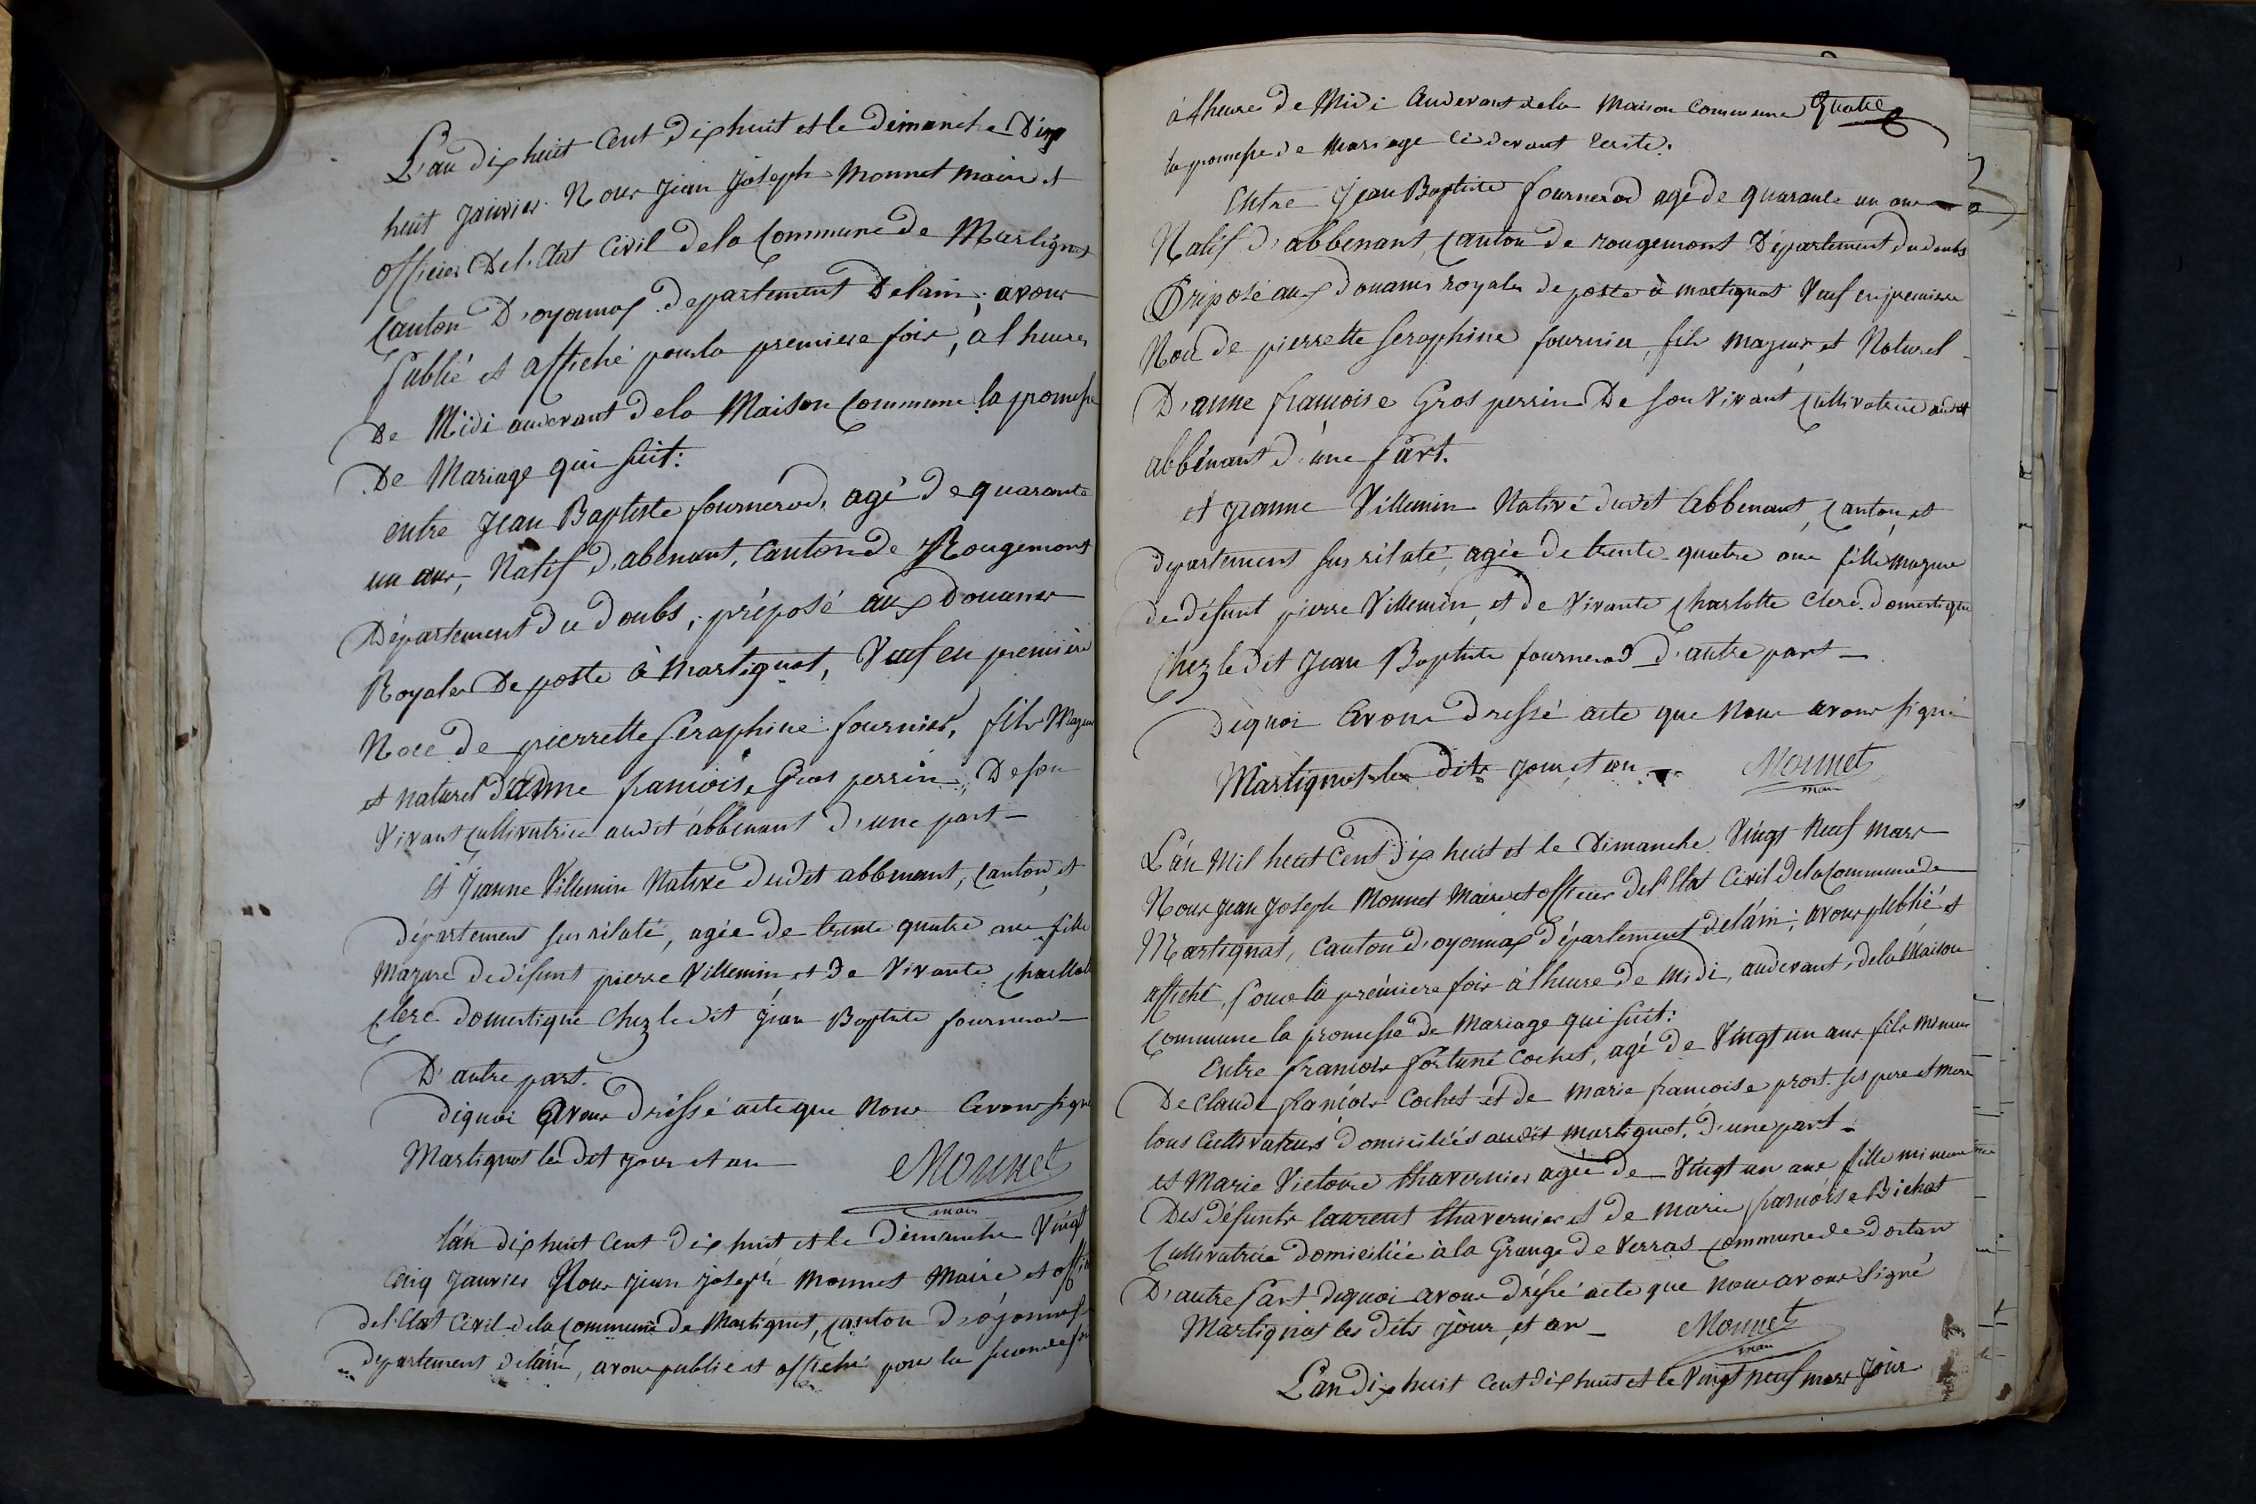 L'an dix huit Cent Dix huit et le dimanche Dix
huit Janvier. Nous Jean Joseph Monnet Maire et
officier De l'Etat Civil dela Commune de Martignat
Canton D'oyonnax département Delain; avons
Publié et affiché pour la premiere fois, a l'heure
De Midi audevant dela Maison Commune la promesse
De Mariage qui suit:
entre Jean Baptiste fournerod, agé de quarante
un ans, Natif d'abenant, Canton de Rougemont
Département du doubs, préposé aux Douanes
Royales De poste à Martignat, Veuf en premiere
Noce de pierrette Seraphine fournier, fils Majeur
et naturel d'anne francoise Gros perrin, De son
Vivant Cultivatrice audit abbenant d'une part —
Et Jeanne Villemin Native dudit abbenant, Canton et
département susrélaté, agée de trente quatre ans fille
Majure de défunt pierre Villemin et de Vivante Charlotte
Clerc domestique Chez le dit Jean Baptiste fournerod —
D'autre part.
diquoi avons dréssé acte que Nous avons signé
Martignat le dit jour et an —
Monnet
maire
L'an dix huit Cent dix huit et le Dimanche Vingt
Cinq Janvier Nous Jean Joseph Monnet Maire et offi
del'Etat Civil dela Commune de Martignat, Canton d'oyonnax
département delain, avons publié et affiché pour la seconde fois
à l'heure de Midi Audevant dela Maison Commune Quatre
la promesse de Mariage Ci devant Ecrite.
Entre Jean Baptiste fournerod agé de quarante un ans
Natif d'abbenant, Canton de rougemont Département du doubs
Préposé aux douanes royales de poste à martignat Veuf en premiere
Noce de pierrette seraphine fournier, fils majeur et Naturel
D'anne francoise Gros perrin De son Vivant Cultivatrice audit
abbénant d'une part.
et Jeanne Villemin Native dudit abbenant, Canton et
departement susrélaté, agée de trente quatre ans fille majure
de défunt pierre Villemin, et de Vivante Charlotte Clerc domestique
Chez le dit Jean Baptiste fournerod d'autre part —
Dèquoi avons dressé acte que Nous avons signé
Martignat les dits jour et an
Monnet
maire
L'an Mil huit Cent Dix huit et le Dimanche Vingt Neuf mars
Nous Jean Joseph Monnet Maire et officier del'Etat Civil dela Commune de
Martignat, Canton d'oyonnax département delain; avons publié et
affiché, pour la premiere fois à l'heure de Midi, audevant dela Maison
Commune la promesse de Mariage qui suit:
Entre francois fortuné Cochet, agé de Vingt un ans fils mineur
De Claude francois Cochet et de Marie francoise prost ses pere et mere
tous Cultivateurs domiciliés audit martignat, d'une part —
et Marie Victoire thavernier agée de Vingt un ans fille mineure
Des défunts laurent thavernier et de Marie francoise Bichat
Cultivatrice domiciliée à la Grange de Verras Commune de dortan
D'autre part dequoi avons dréssé acte que Nous avons signé
Martignat les dits jour et an —
Monnet
maire
L'an dix huit Cent dix huit et le Vingt neuf mars jour